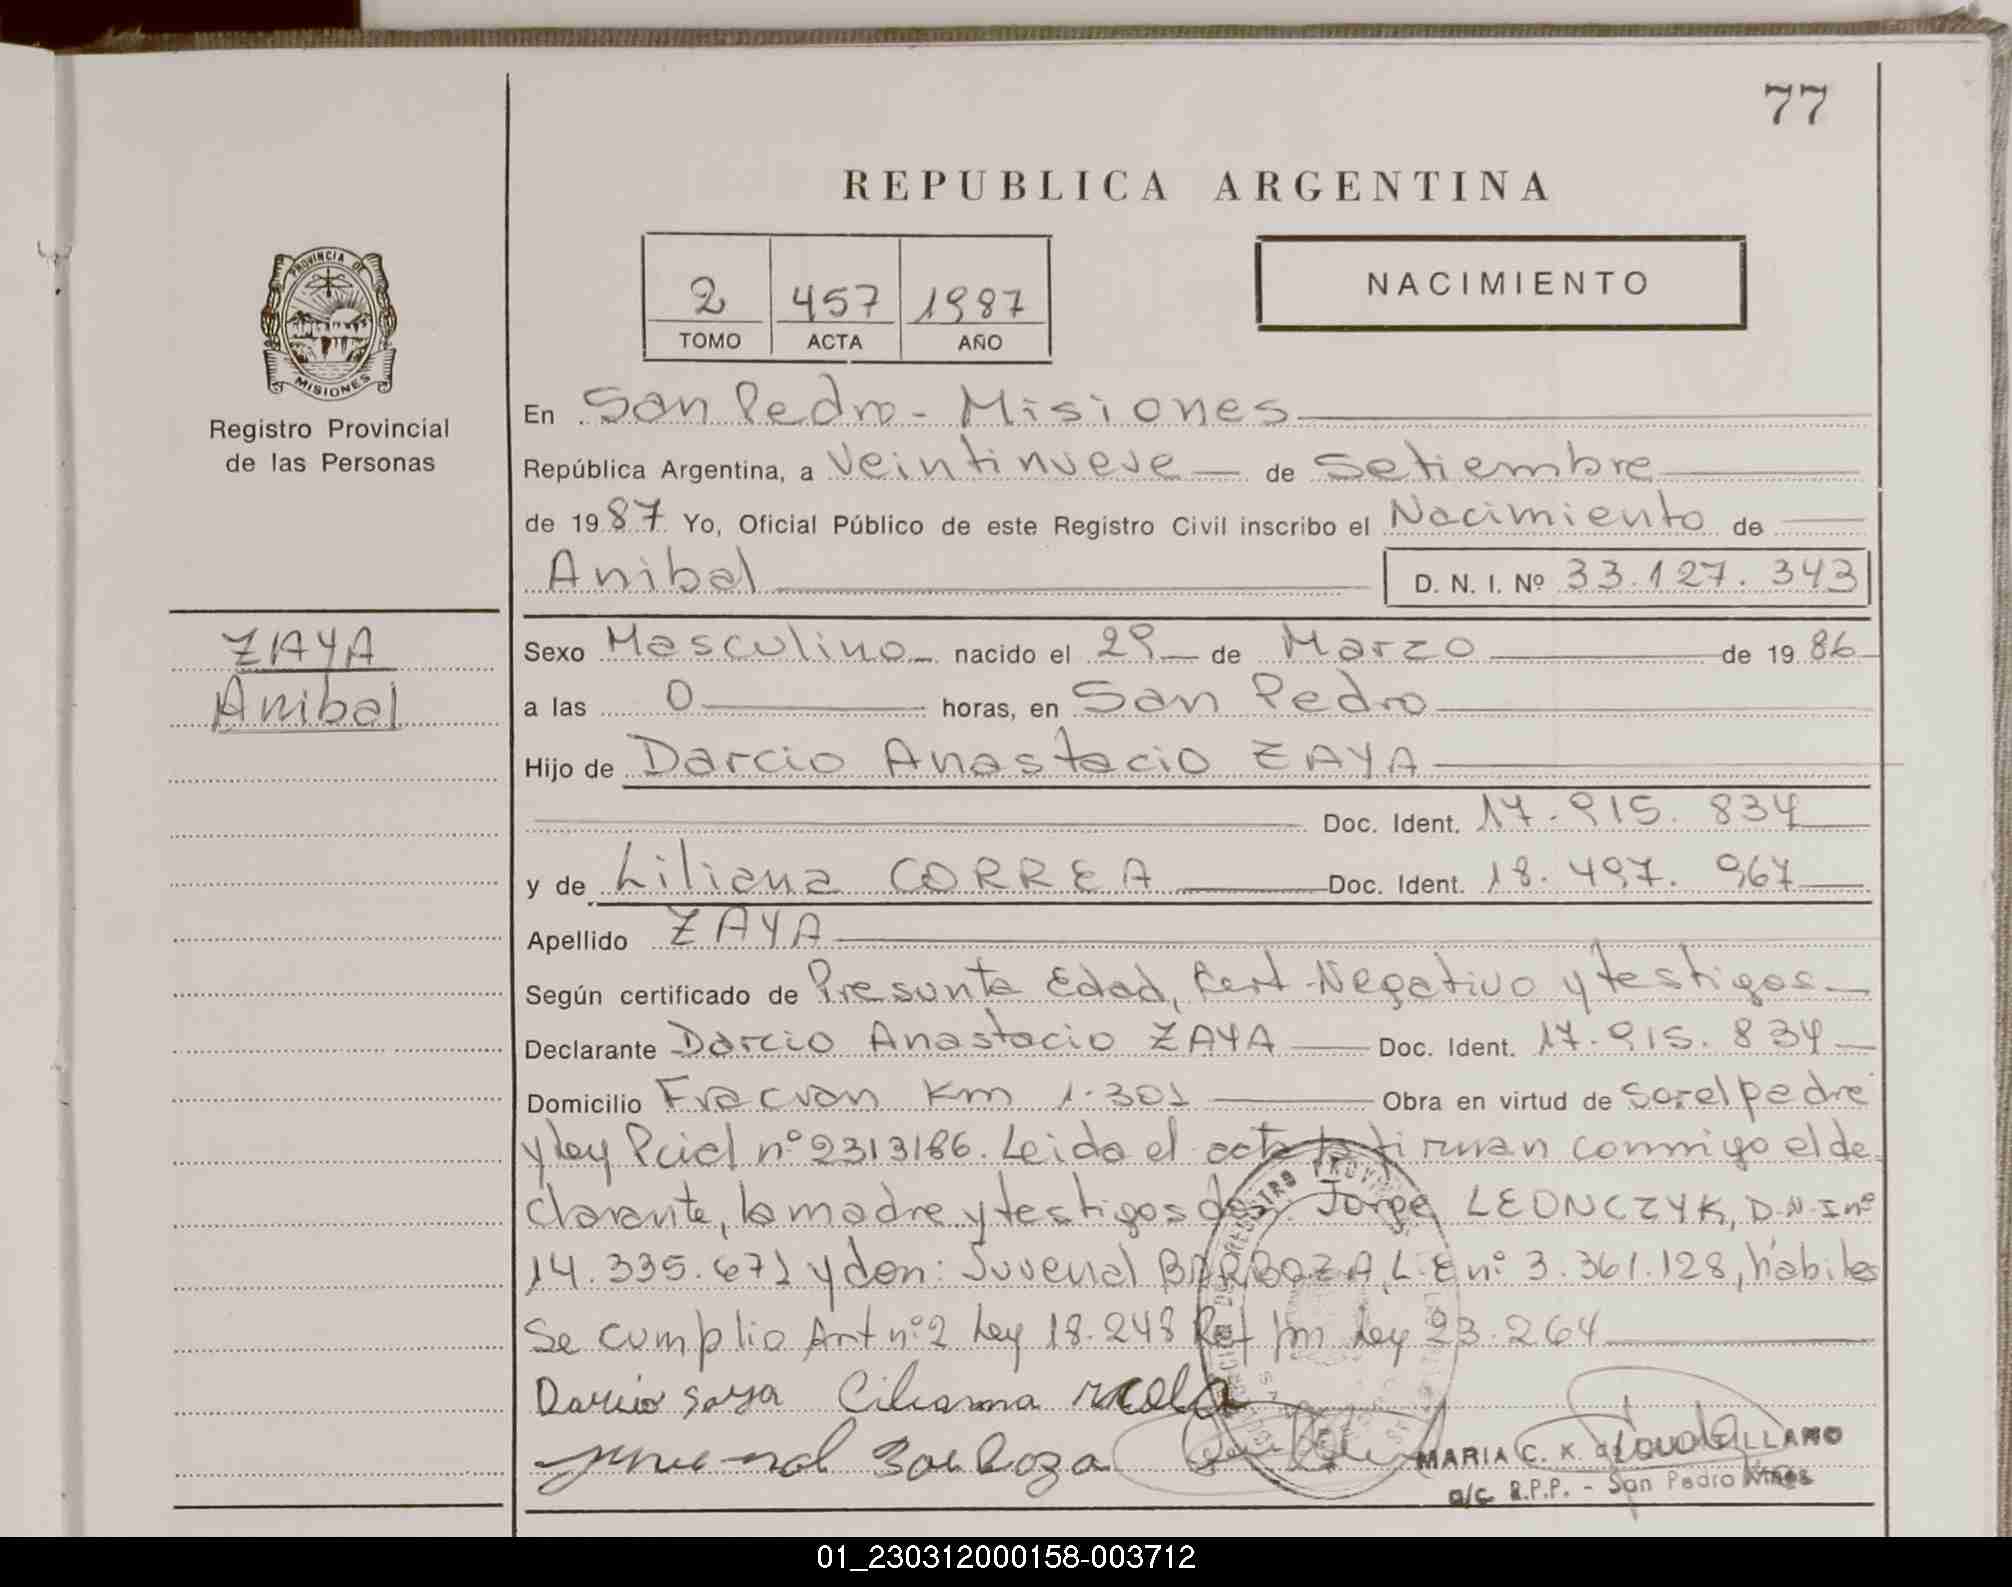 77
REPUBLICA ARGENTINA
PROVINCIA DE
MISIONES
Registro Provincial
de las Personas
2 457 1987
TOMO ACTA AÑO
NACIMIENTO
En San Pedro - Misiones
República Argentina, a Veintinueve de Setiembre
de 1987 Yo, Oficial Público de este Registro Civil inscribo el Nacimiento de
Anibal D. N. I. Nº 33.127.343
ZAYA
Anibal
Sexo Masculino nacido el 29 de Marzo de 1986
a las 0 horas, en San Pedro
Hijo de Darcio Anastacio ZAYA
Doc. Ident. 17.915.834
y de Liliana CORREA Doc. Ident. 18.497.967
Apellido ZAYA
Según certificado de Presunta Edad, Cert. Negativo y testigos
Declarante Darcio Anastacio ZAYA Doc. Ident. 17.915.834
Domicilio Fracran Km 1.301 Obra en virtud de ser el padre
y ley Pcial nº 2313/86. Leida el acta la firman conmigo el de
clarante, la madre y testigos don: Jorge LEONCZYK, D.N.I nº
14.335.671 y don: Juvenal BARBOZA, L.E nº 3.361.128, hábiles
Se cumplio Art nº 2 Ley 18.248 Ley 23.264
Juvenal Barboza
MARIA C. K.
a/c R.P.P. - San Pedro Mnes
01_230312000158-003712